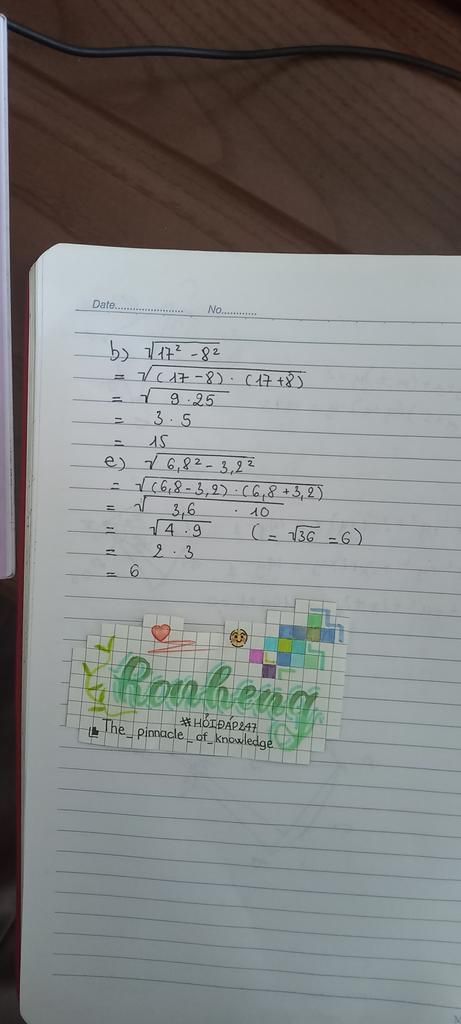 Date...................... No............
b) √17² - 8²
= √(17-8) . (17+8)
= √ 9 . 25
= 3 . 5
= 15
e) √6,8² - 3,2²
= √(6,8-3,2) . (6,8+3,2)
= √ 3,6 . 10
= √4 . 9 ( = √36 = 6)
= 2 . 3
= 6
Ronheng
#HỎIĐÁP247
The_pinnacle_of_knowledge